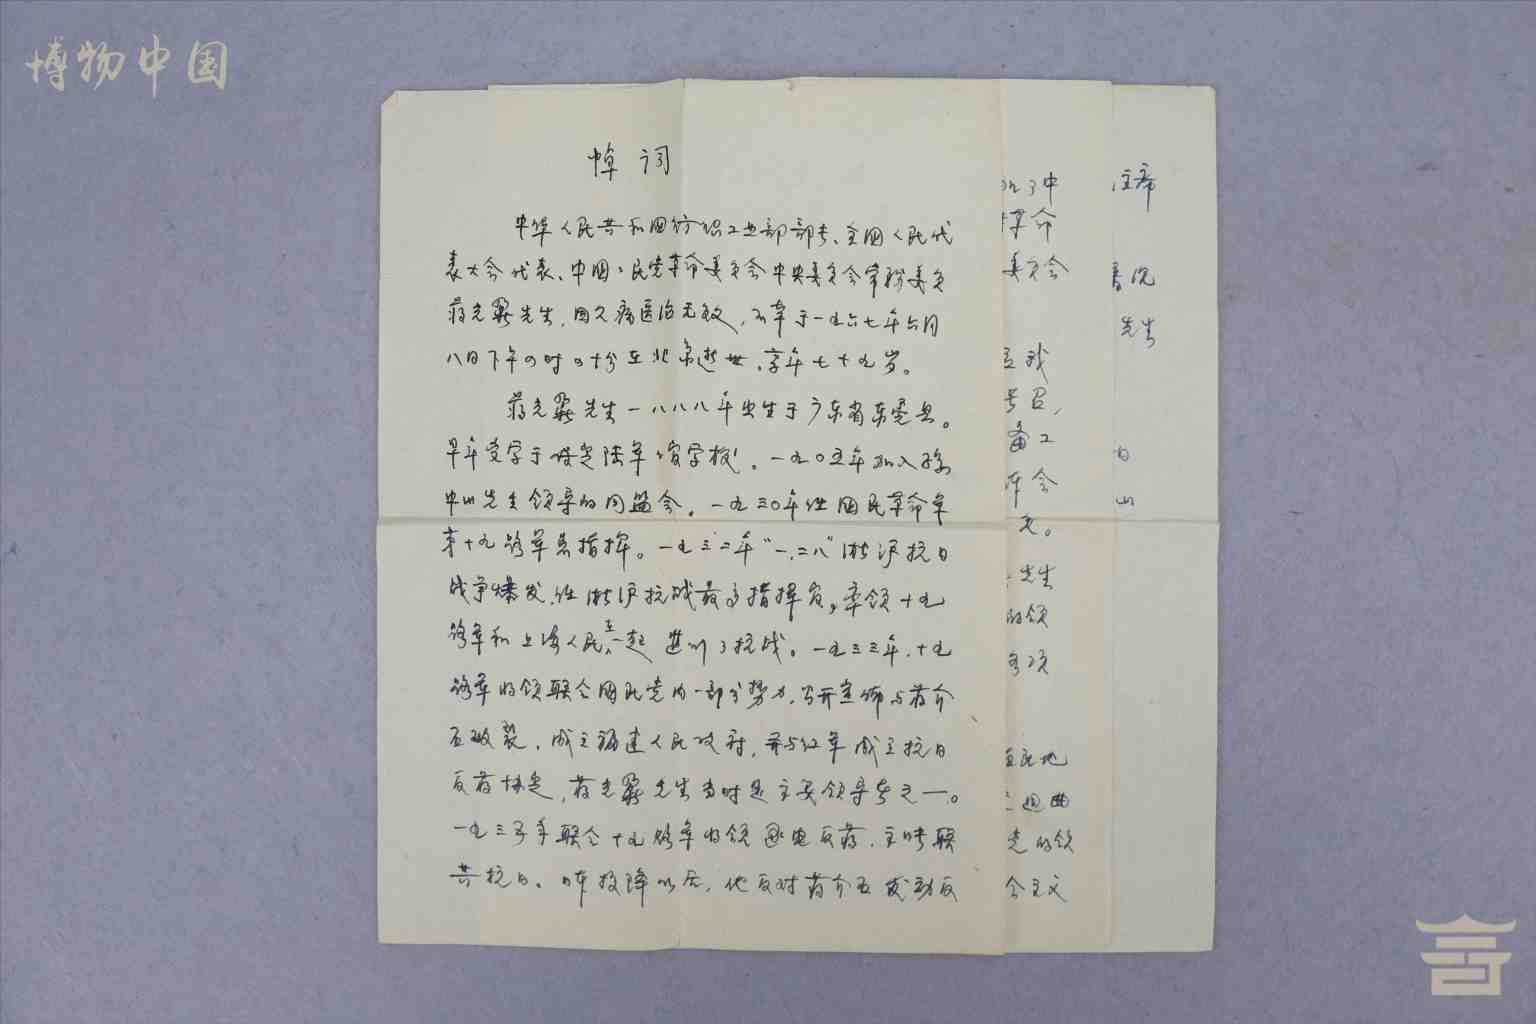 博物中国
悼词
中华人民共和国纺织工业部部长、全国人民代
表大会代表、中国国民党革命委员会中央委员会常务委员
蒋光鼐先生,因久病医治无效,不幸于一九六七年六月
八日下午四时四十分在北京逝世,享年七十九岁。
蒋光鼐先生一八八八年出生于广东省东莞县。
早年受学于保定陆军军官学校。一九〇五年加入孙
中山先生领导的同盟会。一九三〇年任国民革命军
第十九路军总指挥。一九三二年“一.二八”淞沪抗日
战争爆发,任淞沪抗战最高指挥官,率领十九
路军和上海人民在一起进行了抗战。一九三三年,十九
路军将领联合国民党内一部分势力,公开宣布与蒋介
石破裂,成立福建人民政府,并与红军成立抗日
反蒋协定,蒋光鼐先生当时是主要领导者之一。
一九三五年联合十九路军将领通电反蒋,主张联
共抗日。日本投降以后,他反对蒋介石发动反
了中
革命
委员会
我
号召,
备工
会
先生
的领
各项
民地
党的领
会主义
主席
先生
山